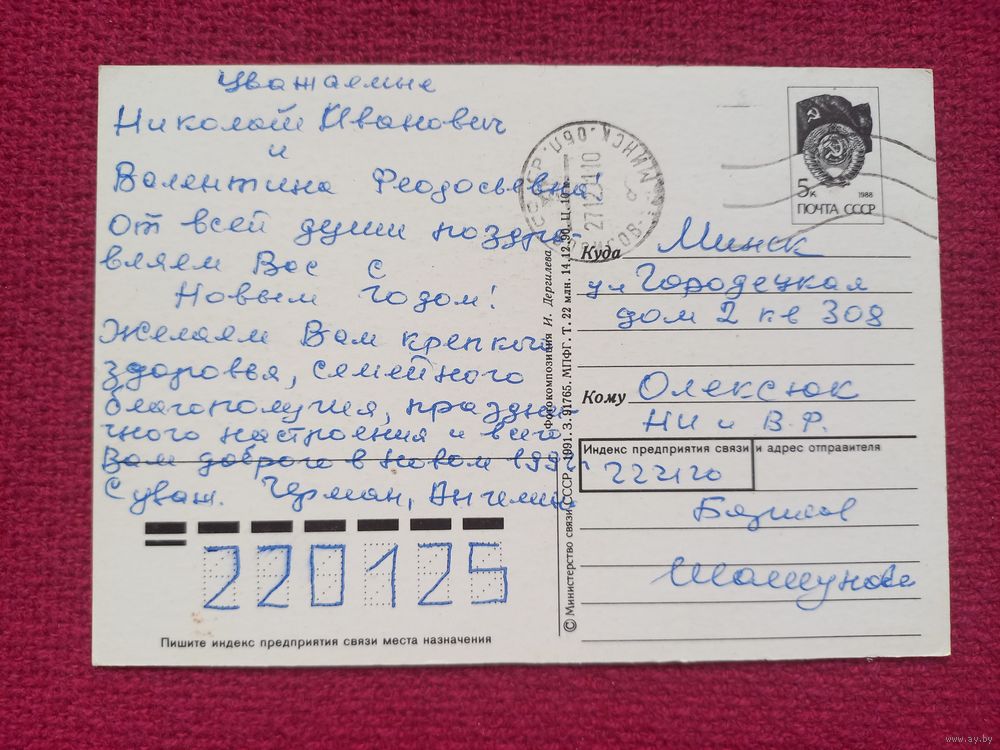 Уважаемые
Николай Иванович
и
Валентина Феодосьевна!
От всей души поздра-
вляем Вас с
Новым Годом!
Желаем Вам крепкого
здоровья, семейного
благополучия, праздни-
чного настроения и всего
Вам доброго в Новом 1992 г
С уваж. Герман, Ангелина
220125
Пишите индекс предприятия связи места назначения
© Министерство связи СССР. 1991. З. 91765. МПФГ. Т. 22 млн. 14.12.90. Ц. 10 к.
Фотокомпозиция И. Дергилева
МИНСК. ОБЛ.
27 12 91 10
5к 1988
ПОЧТА СССР
Куда Минск
ул Городецкая
дом 2 кв 308
Кому Олексюк
НИ и В.Ф.
Индекс предприятия связи и адрес отправителя
222120
www.ay.by